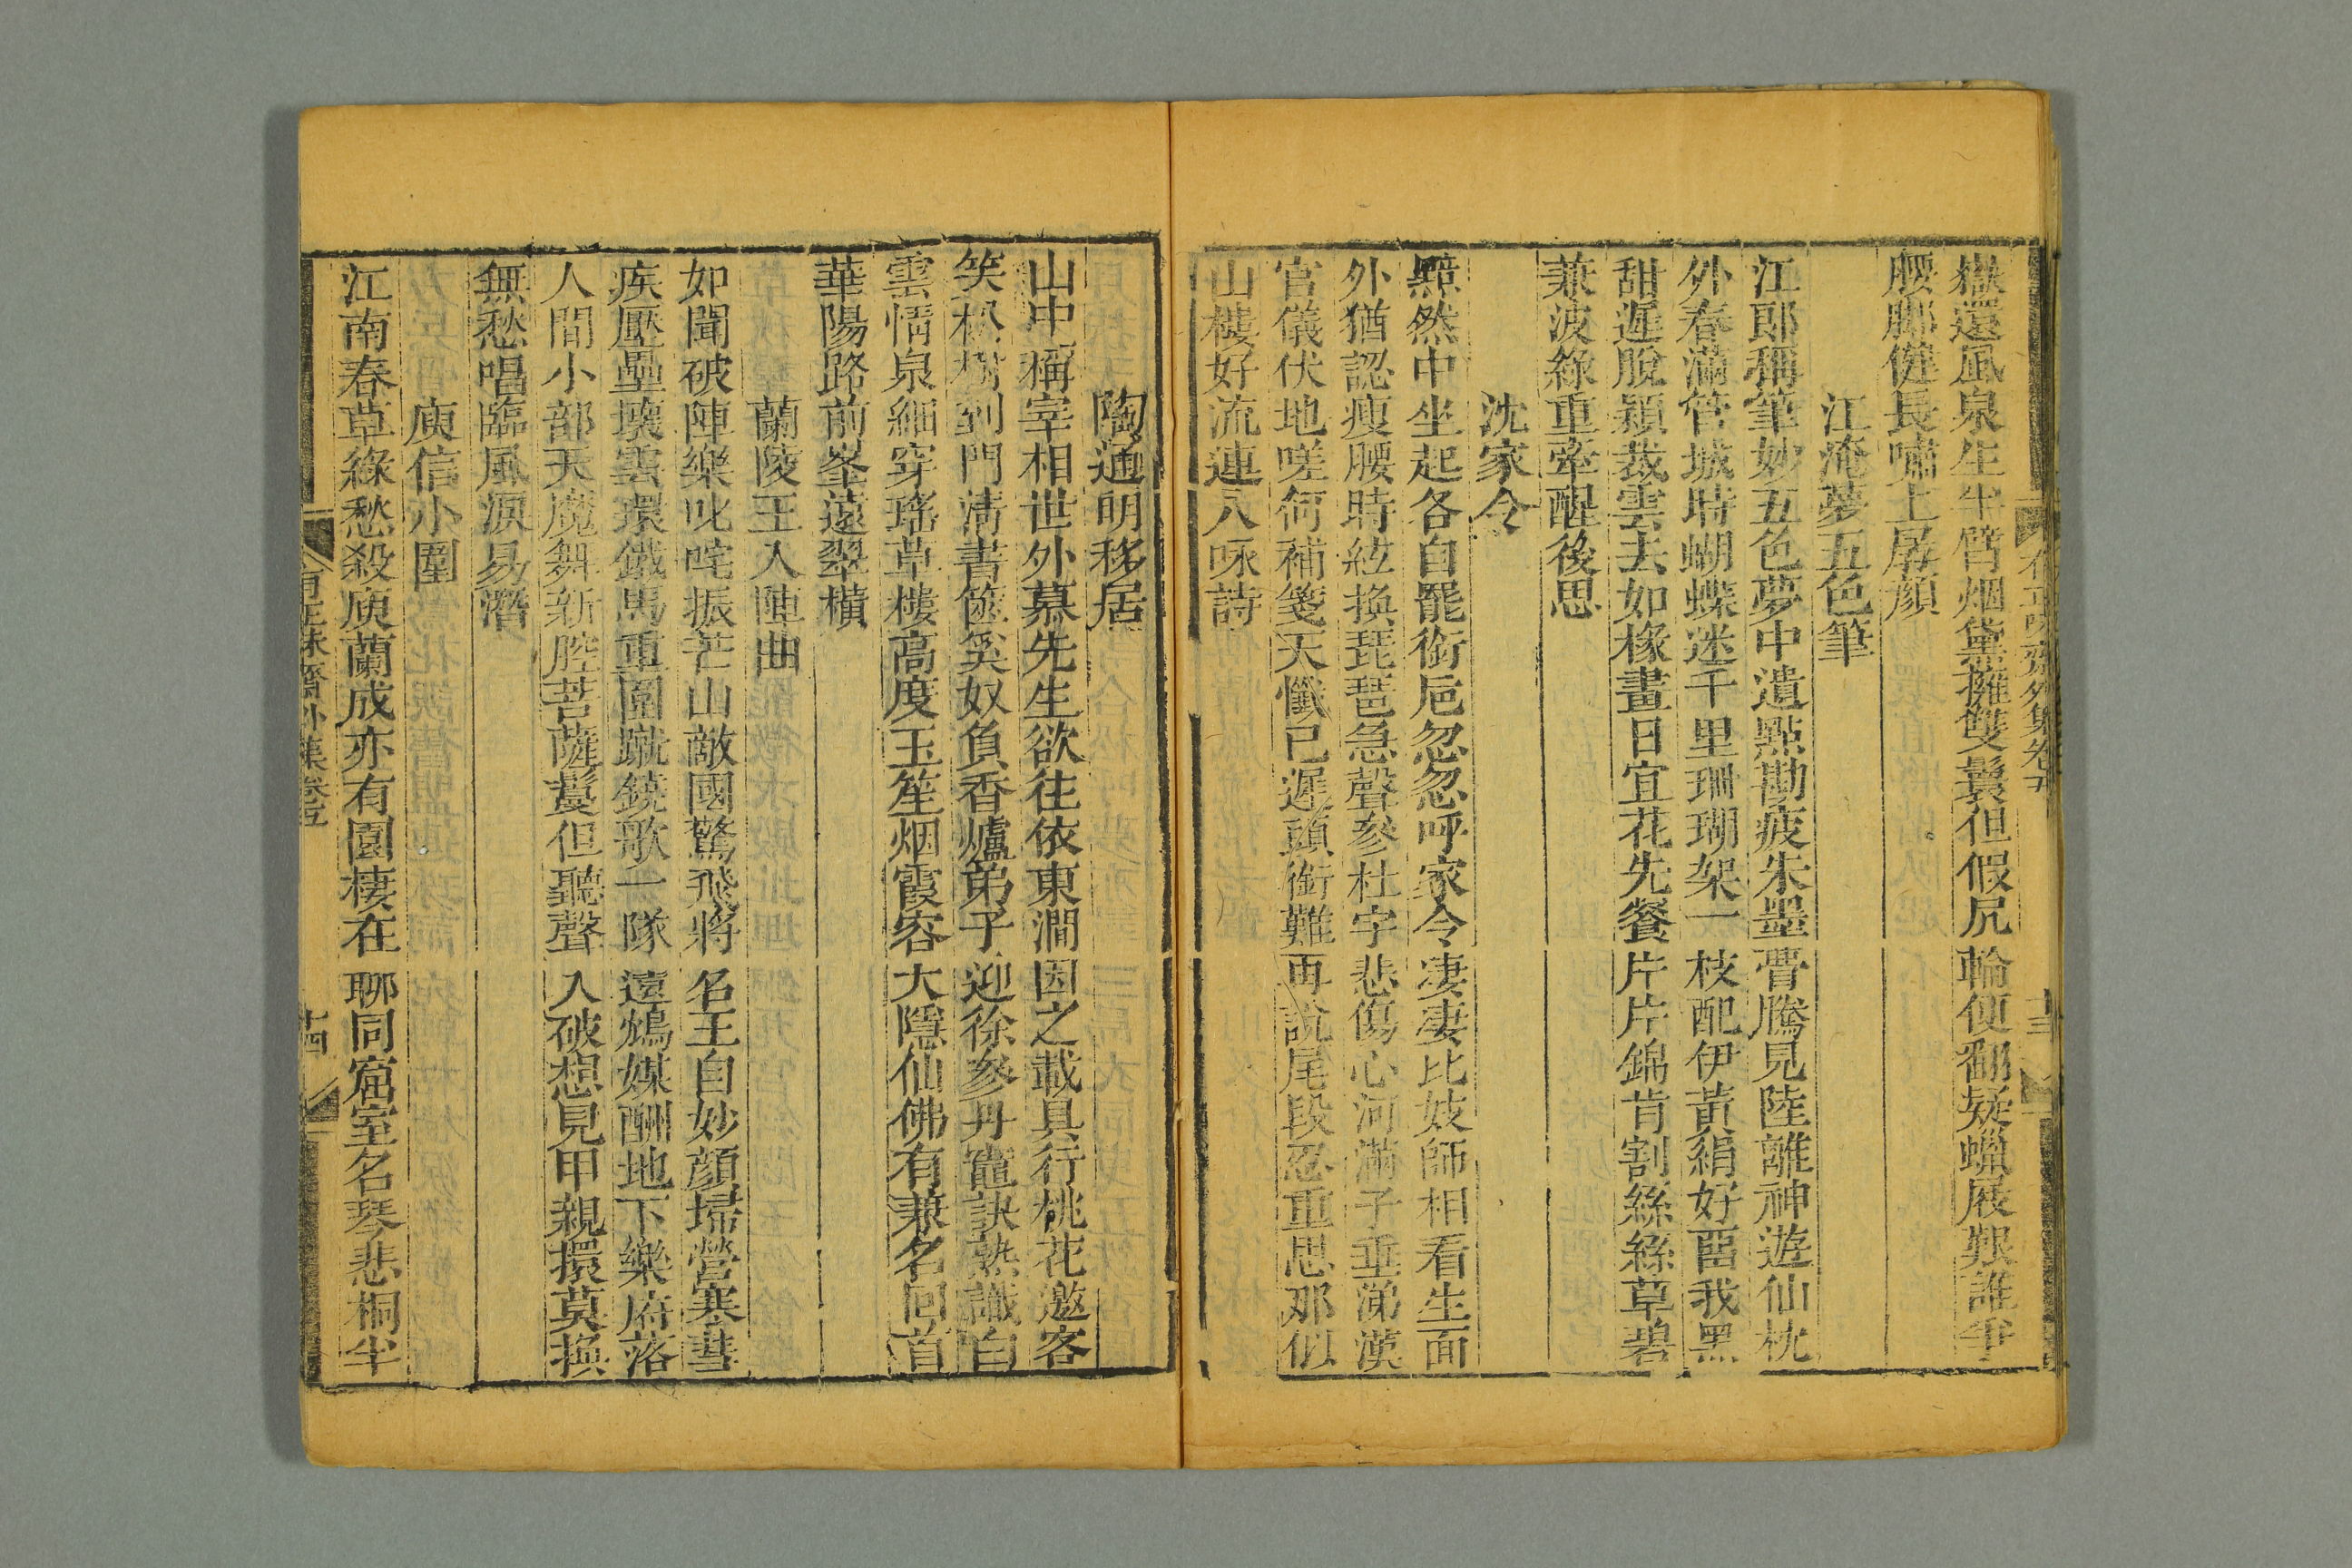 有正味齋外集卷五
十三
嶽還風泉生半臂烟黛擁雙鬟但假尻輪便翻疑蠟屐艱誰爭
腰腳健長嘯上孱顏
江淹夢五色筆
江郎稱筆妙五色夢中遺點勘疲朱墨瞢騰見陸離神遊仙枕
外春滿管城時蝴蝶迷千里珊瑚架一枝配伊黃絹好畱我黑
甜遲脫穎裁雲去如椽畫日宜花先餐片片錦肯割絲絲草碧
兼波綠重牽醒後思
沈家令
黯然中坐起各自罷銜巵忽忽呼家令凄凄比妓師相看生面
外猶認瘦腰時絃換琵琶急聲參杜宇悲傷心河滿子垂涕漢
官儀伏地嗟何補箋天懺已遲頭銜難再說尾段忍重思那似
山樓好流連八咏詩
陶通明移居
山中稱宰相世外慕先生欲往依東澗因之載具行桃花邀客
笑松樹到門淸書篋奚奴負香爐弟子迎徐參丹竈訣熟識白
雲情泉細穿瑤草樓高度玉笙烟霞容大隱仙佛有兼名回首
華陽路前峯遠翠橫
蘭陵王入陣曲
如聞破陣樂叱咤振芒山敵國驚飛將名王自妙顏掃營寒彗
疾壓壘壞雲環鐵馬重圍蹴鐃歌一隊還鴆媒酬地下樂府落
人間小部天魔舞新腔菩薩鬘但聽聲入破想見甲親擐莫換
無愁唱臨風淚易潸
庾信小園
江南春草綠愁殺庾蘭成亦有園棲在聊同窟室名琴悲桐半
有正味齋外集卷五
十四